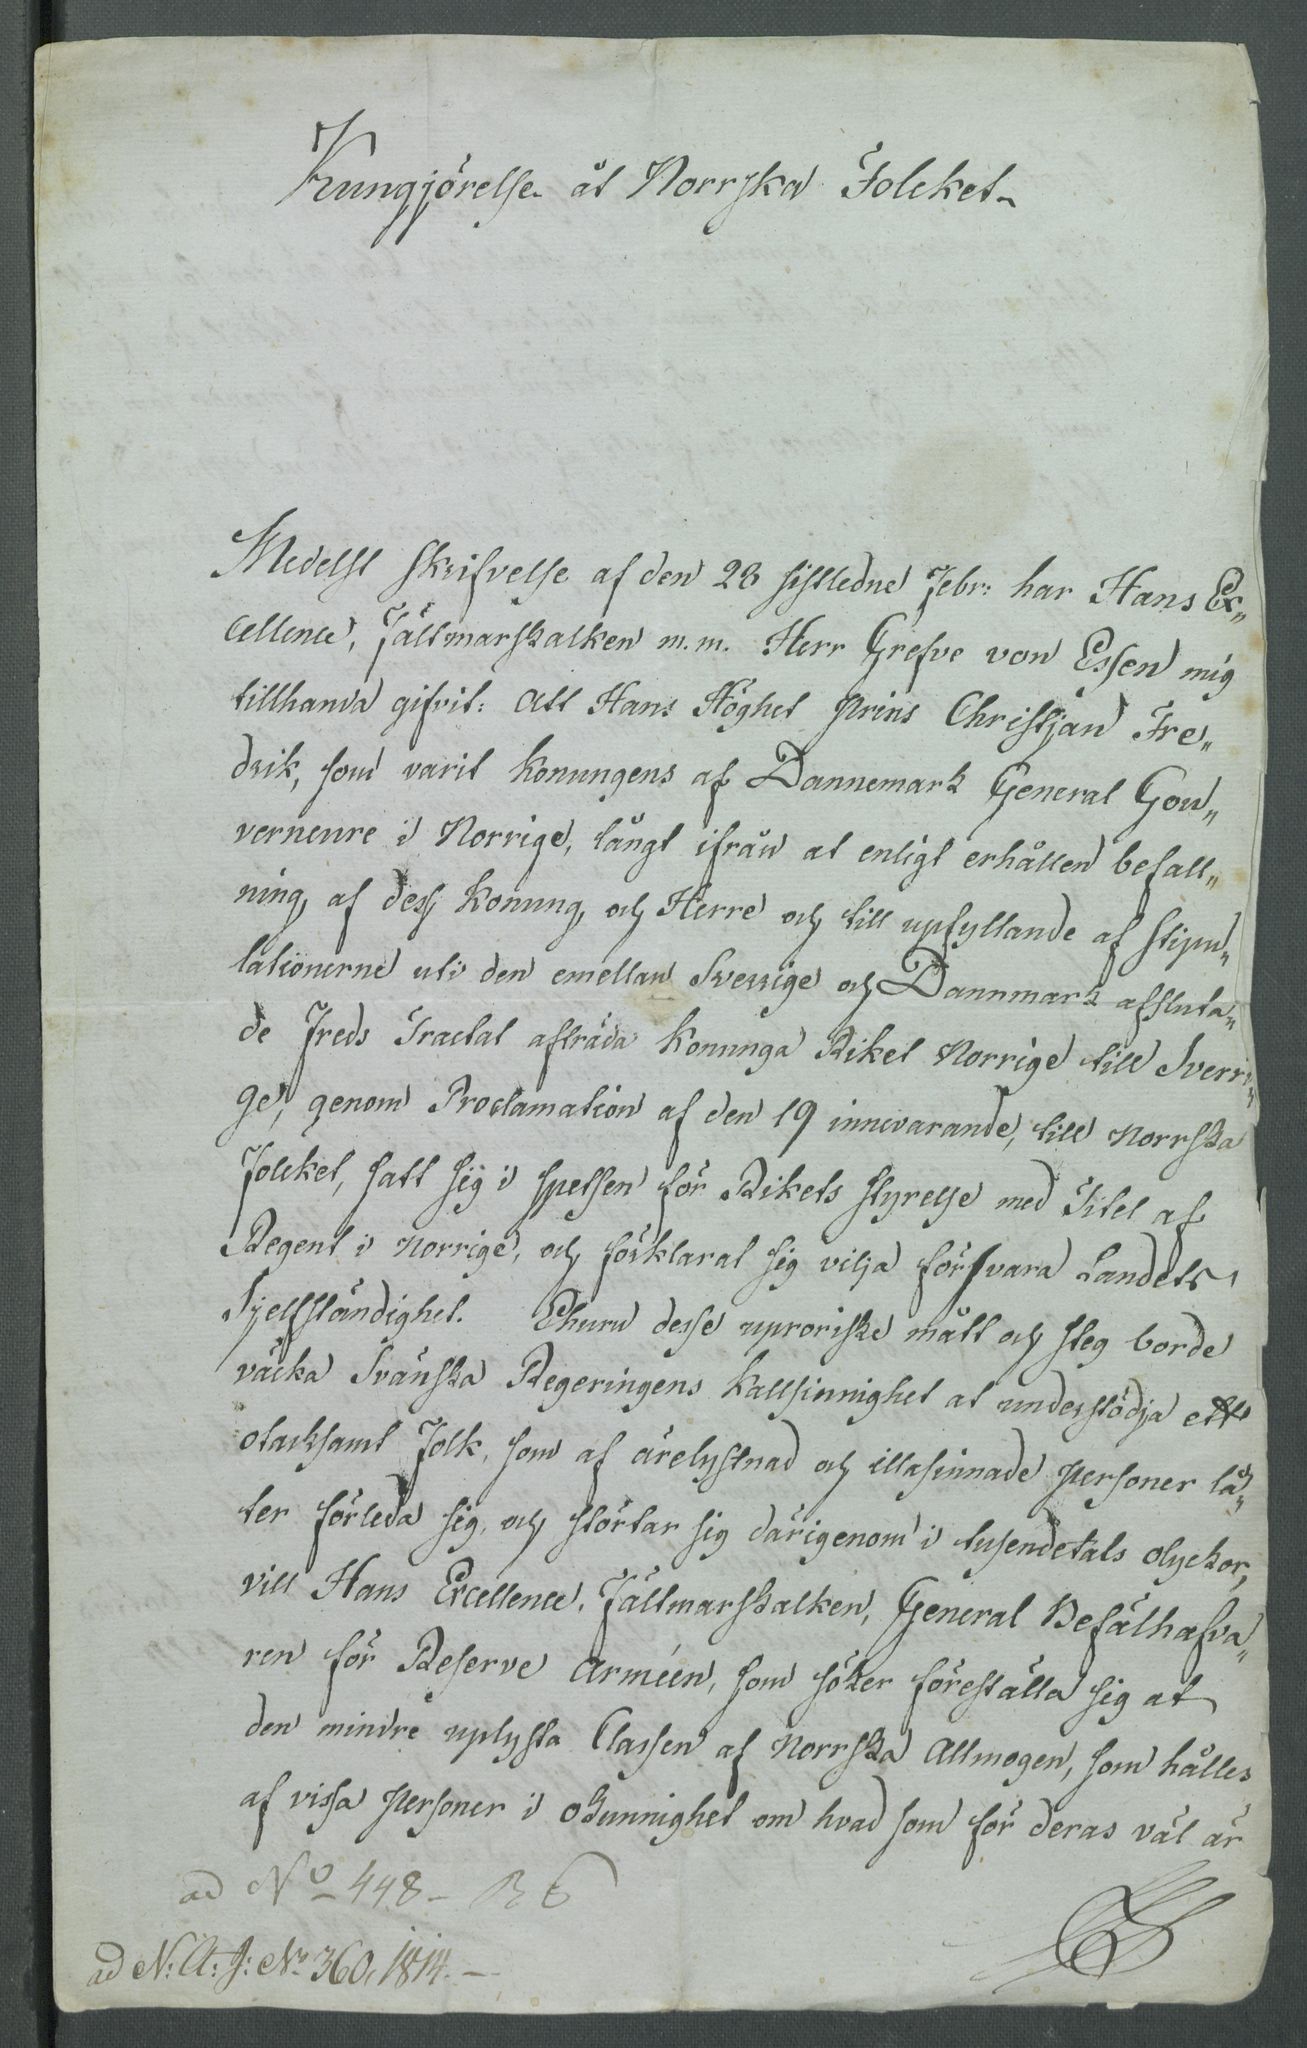 Kungjörelse åt Norrska Folcket
Medelst skrifvelse af den 28 sistledne Febr: har Hans Ex„
cellence, Fältmarskalken m.m. Herr Grefve von Essen mig
tillhanda gifvit: att Hans Höghet Prins Christjan Fre„
drik, som varit Konungens af Dannemark General Gou„
verneure i Norrige, långt ifrån at enligt erhållen befall„
ning, af dess Konung, och Herre och till upfyllande af stipu„
lationerne uti den emellan Sverrige och Dannmark afsluta„
de Freds Tractat afträda Konunga Riket Norrige till Sverri„
ge, genom Proclamation af den 19 innevarande, till Norrska
Folcket, satt sig i spetsen för Rikets styrelse med Titel af
Regent i Norrige, och förklarat sig vilja försvara Landets
Sjelfständighet. Ehuru desse uproriske mått och steg borde
väcka Svänska Regeringens kallsinnighet at understödja ett
otacksamt Folk, som af ärelystnad och illasinnade Personer lå„
ter förleda sig, och störtar sig därigenom i tusendetals olyckor,
vill Hans Excellence, Fältmarskalken, General Befälhafva„
ren för Reserve Arméen, som söker föreställa sig at
den mindre uplysta Classen af Norrska Allmogen, som hålles
af vissa Personer i okunnighet om hvad som för deras väl är
ad No 448 - B 6
ad N: A: J: No 360, 1814. —